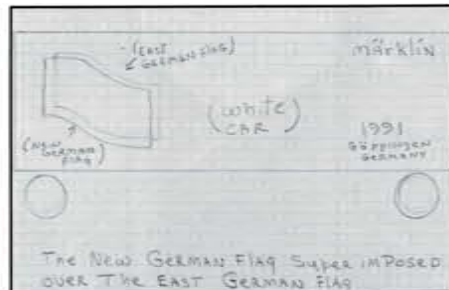 (EAST
GERMAN FLAG)
märklin
(white
CAR)
(NEW
GERMAN
FLAG)
1991
GöPPINGEN
GERMANY
The New GERMAN Flag Super IMPOSED
OVER The EAST GERMAN FLAG